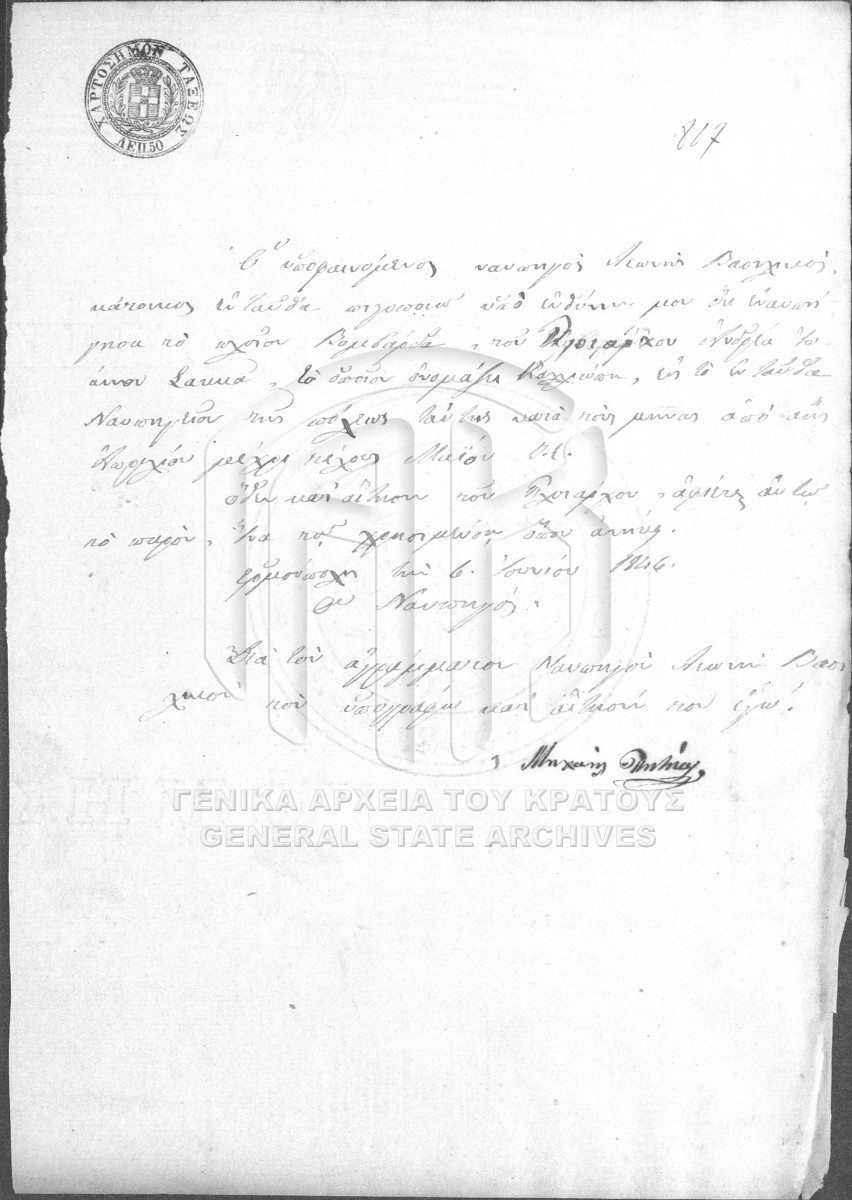 ΧΑΡΤΟΣΗΜΟΝ ΤΑΞΕΩΣ
ΛΕΠ.50
817
Ὁ ὑποφαινόμενος ναυπηγὸς Λεωνῆς Βασηλικὸς,
κάτοικος ἐνταῦθα πιστοποιῶ ὑπὸ εὐθύνην μου ὅτι ἐναυπή
γησα τὸ πλοῖον Βομβάρδα, τοῦ Πλοιάρχου Ἀνδρέα Ἰω
άννου Σακκᾶ, τὸ ὁποῖον ὀνομάζει Καλλιόπη, εἰς τὸ ἐνταῦθα
Ναυπηγεῖον τῆς πόλεως ταύτης κατὰ τοὺς μῆνας ἀπὸ
Ἀπριλίου μέχρι τέλους Μαΐου
ὅθεν κατ' αἴτησιν τοῦ Πλοιάρχου, ἀφίεται αὐτῷ
τὸ παρὸν, ἵνα τῷ χρησιμεύσῃ ὅπου ἀνήκῃ.
Ἑρμούπολη τὴν 6. Ἰουνίου 1846.
Ὁ Ναυπηγός.
Διὰ τὸν ἀγράμματον Ναυπηγὸν Λεωνῆ Βασι
λικὸν ὑπογράφω κατ' αἴτησίν του ἐγώ.
Μηχαήλ
ΓΕΝΙΚΑ ΑΡΧΕΙΑ ΤΟΥ ΚΡΑΤΟΥΣ
GENERAL STATE ARCHIVES